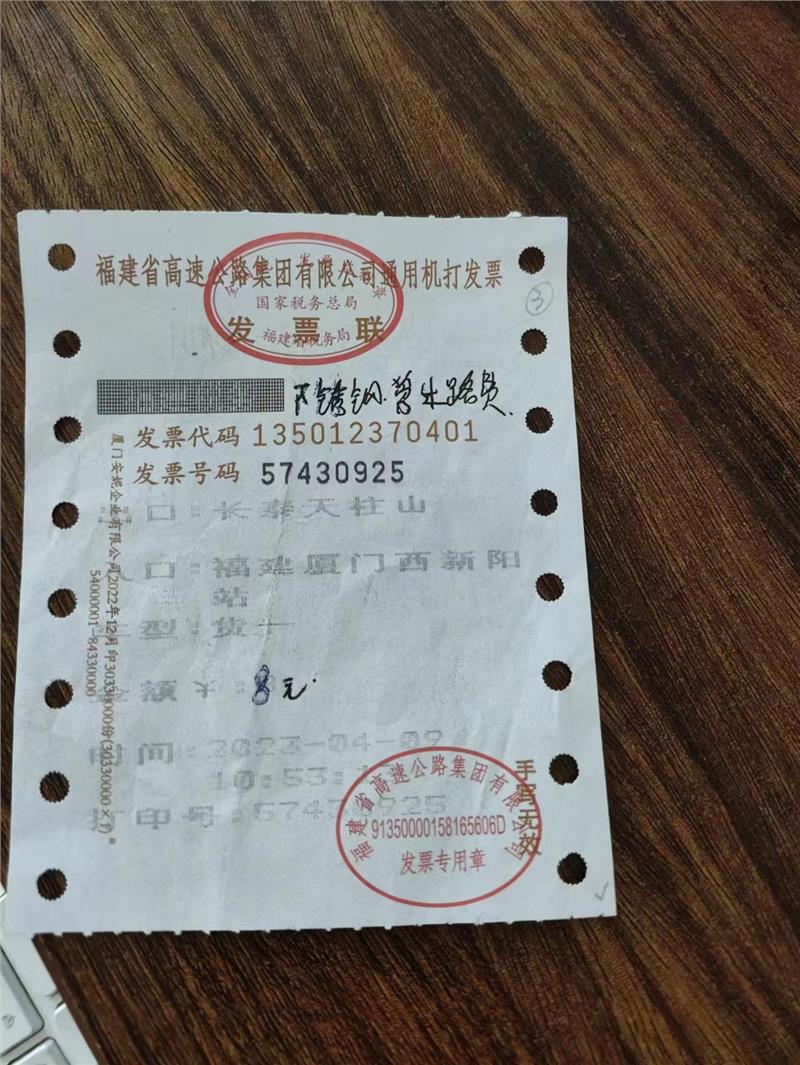 福建省高速公路集团有限公司通用机打发票
国家税务总局
发票联
福建省税务局
③
发票代码 135012370401
发票号码 57430925
口:长泰天柱山
口:福建厦门西新阳
站
型:货一
额¥:8元.
时间:2023-04-09
10:53:
打印号:57430925
厦门安妮企业有限公司2022年12月印30330000份(30330000×1)
54000001-84330000
手写无效
福建省高速公路集团有限公司
91350000158165606D
发票专用章